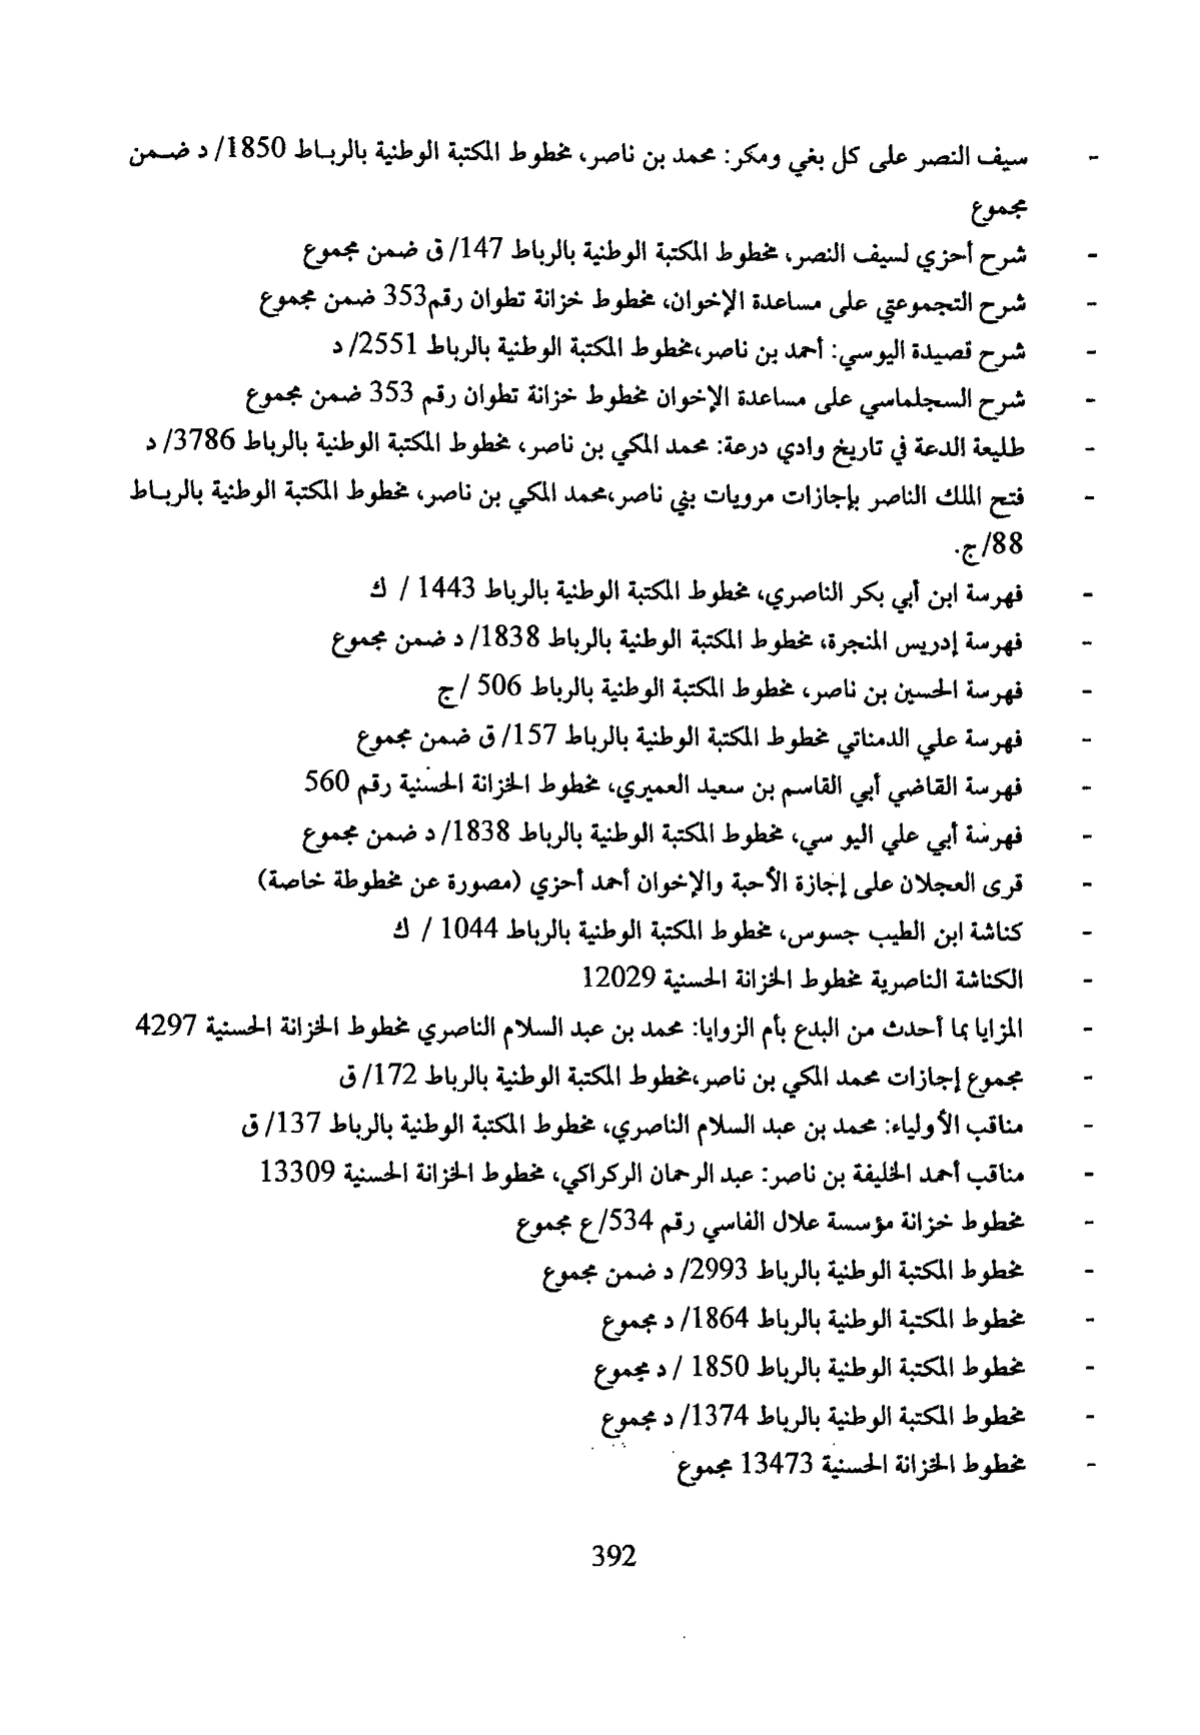 - سيف النصر على كل بغي ومكر: محمد بن ناصر، مخطوط المكتبة الوطنية بالرباط 1850/ د ضمن
مجموع
- شرح أحزي لسيف النصر، مخطوط المكتبة الوطنية بالرباط 147/ ق ضمن مجموع
- شرح التجموعتي على مساعدة الإخوان، مخطوط خزانة تطوان رقم353 ضمن مجموع
- شرح قصيدة اليوسي: أحمد بن ناصر،مخطوط المكتبة الوطنية بالرباط 2551/ د
- شرح السجلماسي على مساعدة الإخوان مخطوط خزانة تطوان رقم 353 ضمن مجموع
- طليعة الدعة في تاريخ وادي درعة: محمد المكي بن ناصر، مخطوط المكتبة الوطنية بالرباط 3786/ د
- فتح الملك الناصر بإجازات مرويات بني ناصر،محمد المكي بن ناصر، مخطوط المكتبة الوطنية بالرباط
88/ج.
- فهرسة ابن أبي بكر الناصري، مخطوط المكتبة الوطنية بالرباط 1443 / ك
- فهرسة إدريس المنجرة، مخطوط المكتبة الوطنية بالرباط 1838/ د ضمن مجموع
- فهرسة الحسين بن ناصر، مخطوط المكتبة الوطنية بالرباط 506 /ج
- فهرسة علي الدمناتي مخطوط المكتبة الوطنية بالرباط 157/ ق ضمن مجموع
- فهرسة القاضي أبي القاسم بن سعيد العميري، مخطوط الخزانة الحسنية رقم 560
- فهرسة أبي علي اليو سي، مخطوط المكتبة الوطنية بالرباط 1838/ د ضمن مجموع
- قرى العجلان على إجازة الأحبة والإخوان أحمد أحزي (مصورة عن مخطوطة خاصة)
- كناشة ابن الطيب جسوس، مخطوط المكتبة الوطنية بالرباط 1044 / ك
- الكناشة الناصرية مخطوط الخزانة الحسنية 12029
- المزايا بما أحدث من البدع بأم الزوايا: محمد بن عبد السلام الناصري مخطوط الخزانة الحسنية 4297
- مجموع إجازات محمد المكي بن ناصر،مخطوط المكتبة الوطنية بالرباط 172/ ق
- مناقب الأولياء: محمد بن عبد السلام الناصري، مخطوط المكتبة الوطنية بالرباط 137/ ق
- مناقب أحمد الخليفة بن ناصر: عبد الرحمان الركراكي، مخطوط الخزانة الحسنية 13309
- مخطوط خزانة مؤسسة علال الفاسي رقم 534/ع مجموع
- مخطوط المكتبة الوطنية بالرباط 2993/ د ضمن مجموع
- مخطوط المكتبة الوطنية بالرباط 1864/ د مجموع
- مخطوط المكتبة الوطنية بالرباط 1850 / د مجموع
- مخطوط المكتبة الوطنية بالرباط 1374/ د مجموع
- مخطوط الخزانة الحسنية 13473 مجموع
392